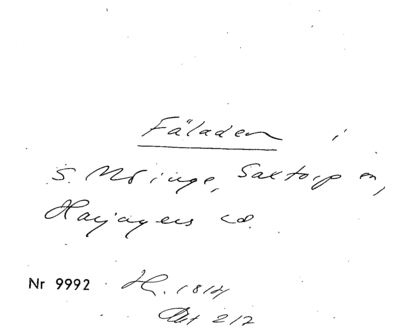 Fäladen i
S. Möinge, Saxtorp sn,
Harjagers hd.
Nr 9992 H. 1814
Akt 212